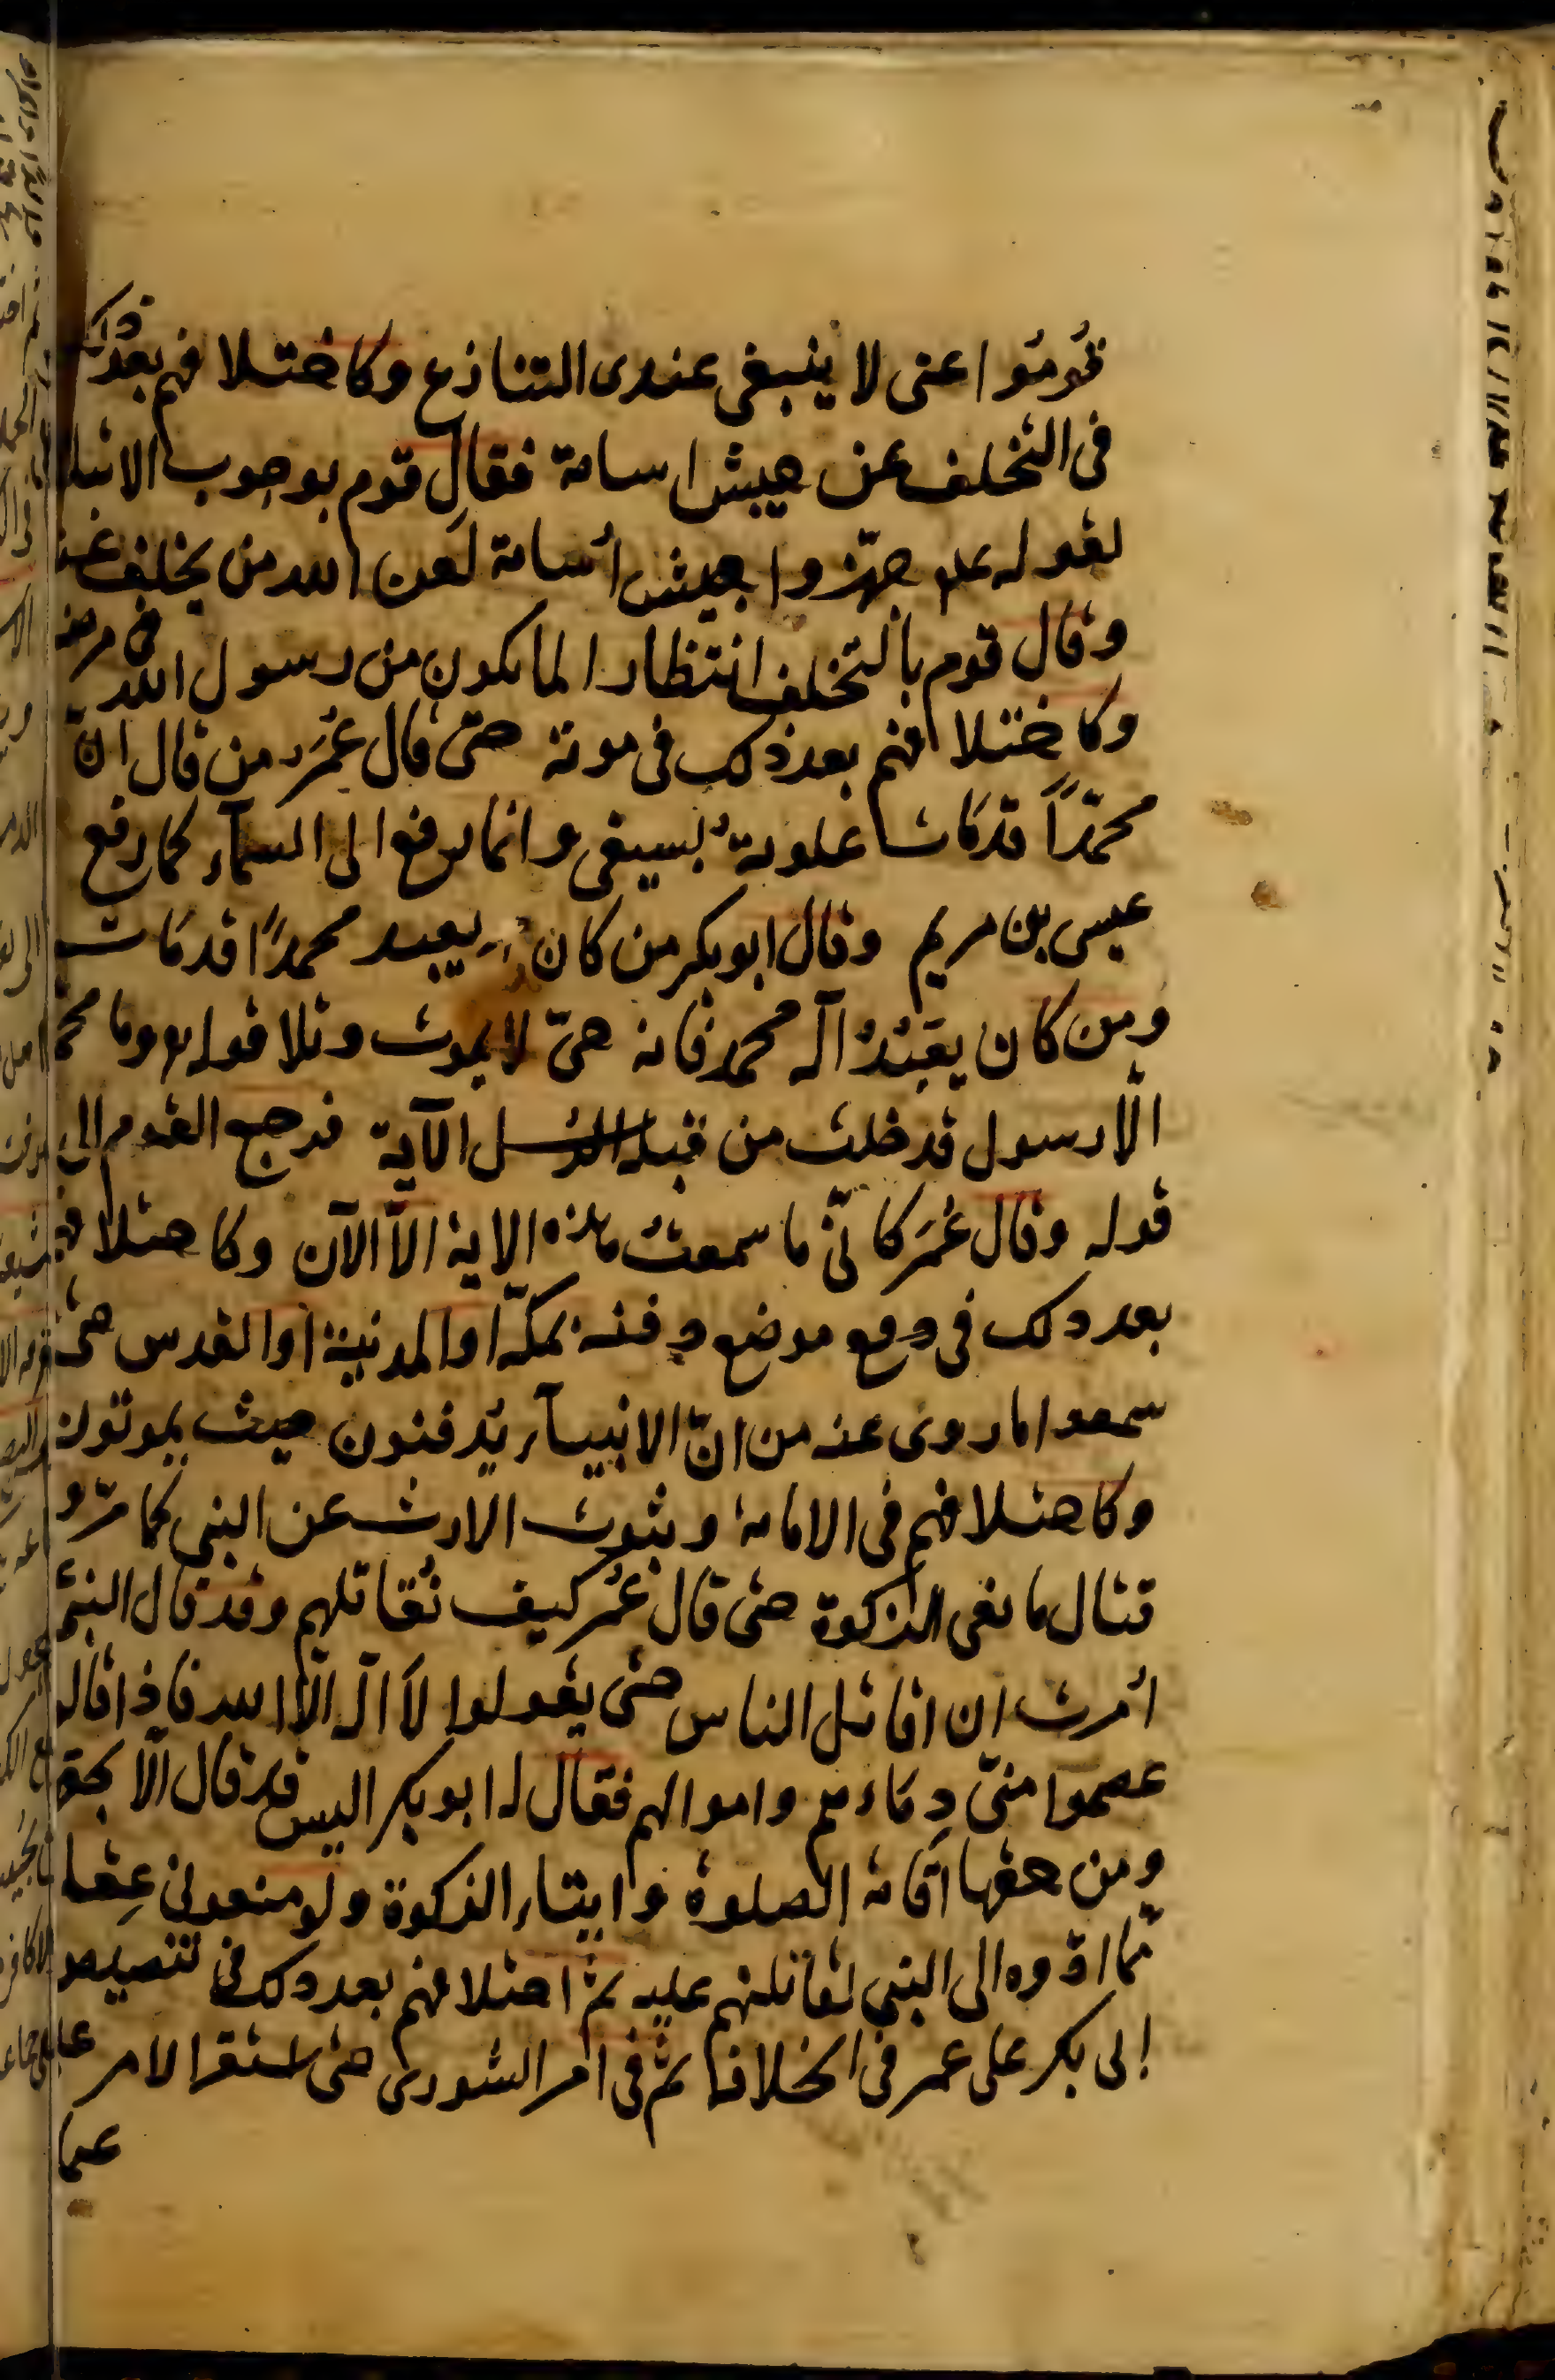 قُومُوا عنى لا ينبغى عندى التنازع وكاختلافهم بعد ذلك
فى التخلف عن جيش اسامة فقال قوم بوجوب الاتباع
لقوله علم جهّزوا جيش أسامة لعن الله من تخلف عنه
وقال قوم بالتخلف انتظارا لما يكون من رسول الله فى مرضه
وكاختلافهم بعد ذلك فى موته حتى قال عُمَر من قال انّ
محمّداً قد مَات علوته بسيفى وانما رفع الى السمآء كما رفع
عيسى بن مريم وقال ابو بكر من كان يعبد محمداً قد مَات
ومن كان يعبُدُ آله محمد فانه حىّ لا يموت وتلا قوله وما محمد
الّا رسول قد خلت من قبله الرسل الآية فرجع القوم الى
قوله وقال عُمَر كانّى ما سمعتُ هذه الاية الّا الآن وكاختلافهم
بعد ذلك فى موضع دفنه بمكّة او المدنية او القدس حتى
سمعوا ما روى عنه من انّ الانبيآء يُدفنون حيث يموتون
وكاختلافهم فى الامامة وثبوت الارث عن النبى كما مرّ و
قتال مانعى الزكوة حتى قال عُمر كيف نُقاتلهم وقد قال النبى
اُمرت ان اقاتل الناس حتى يقولوا لا اله الّا الله فاذا قالو
عصموا منّى دِمَاءهم واموالهم فقال له ابو بكر اليس قد قال الّا بحق
ومن حقها اقامة الصلوة وايتاء الزكوة ولو منعونى عِقا
ممّا ادّوه الى النبى لقاتلتهم عليه ثم اختلافهم بعد ذلك فى تنصيص
ابى بكر على عمر فى الخلافة ثم فى امر الشورى حتى استقر الامر على
عثما